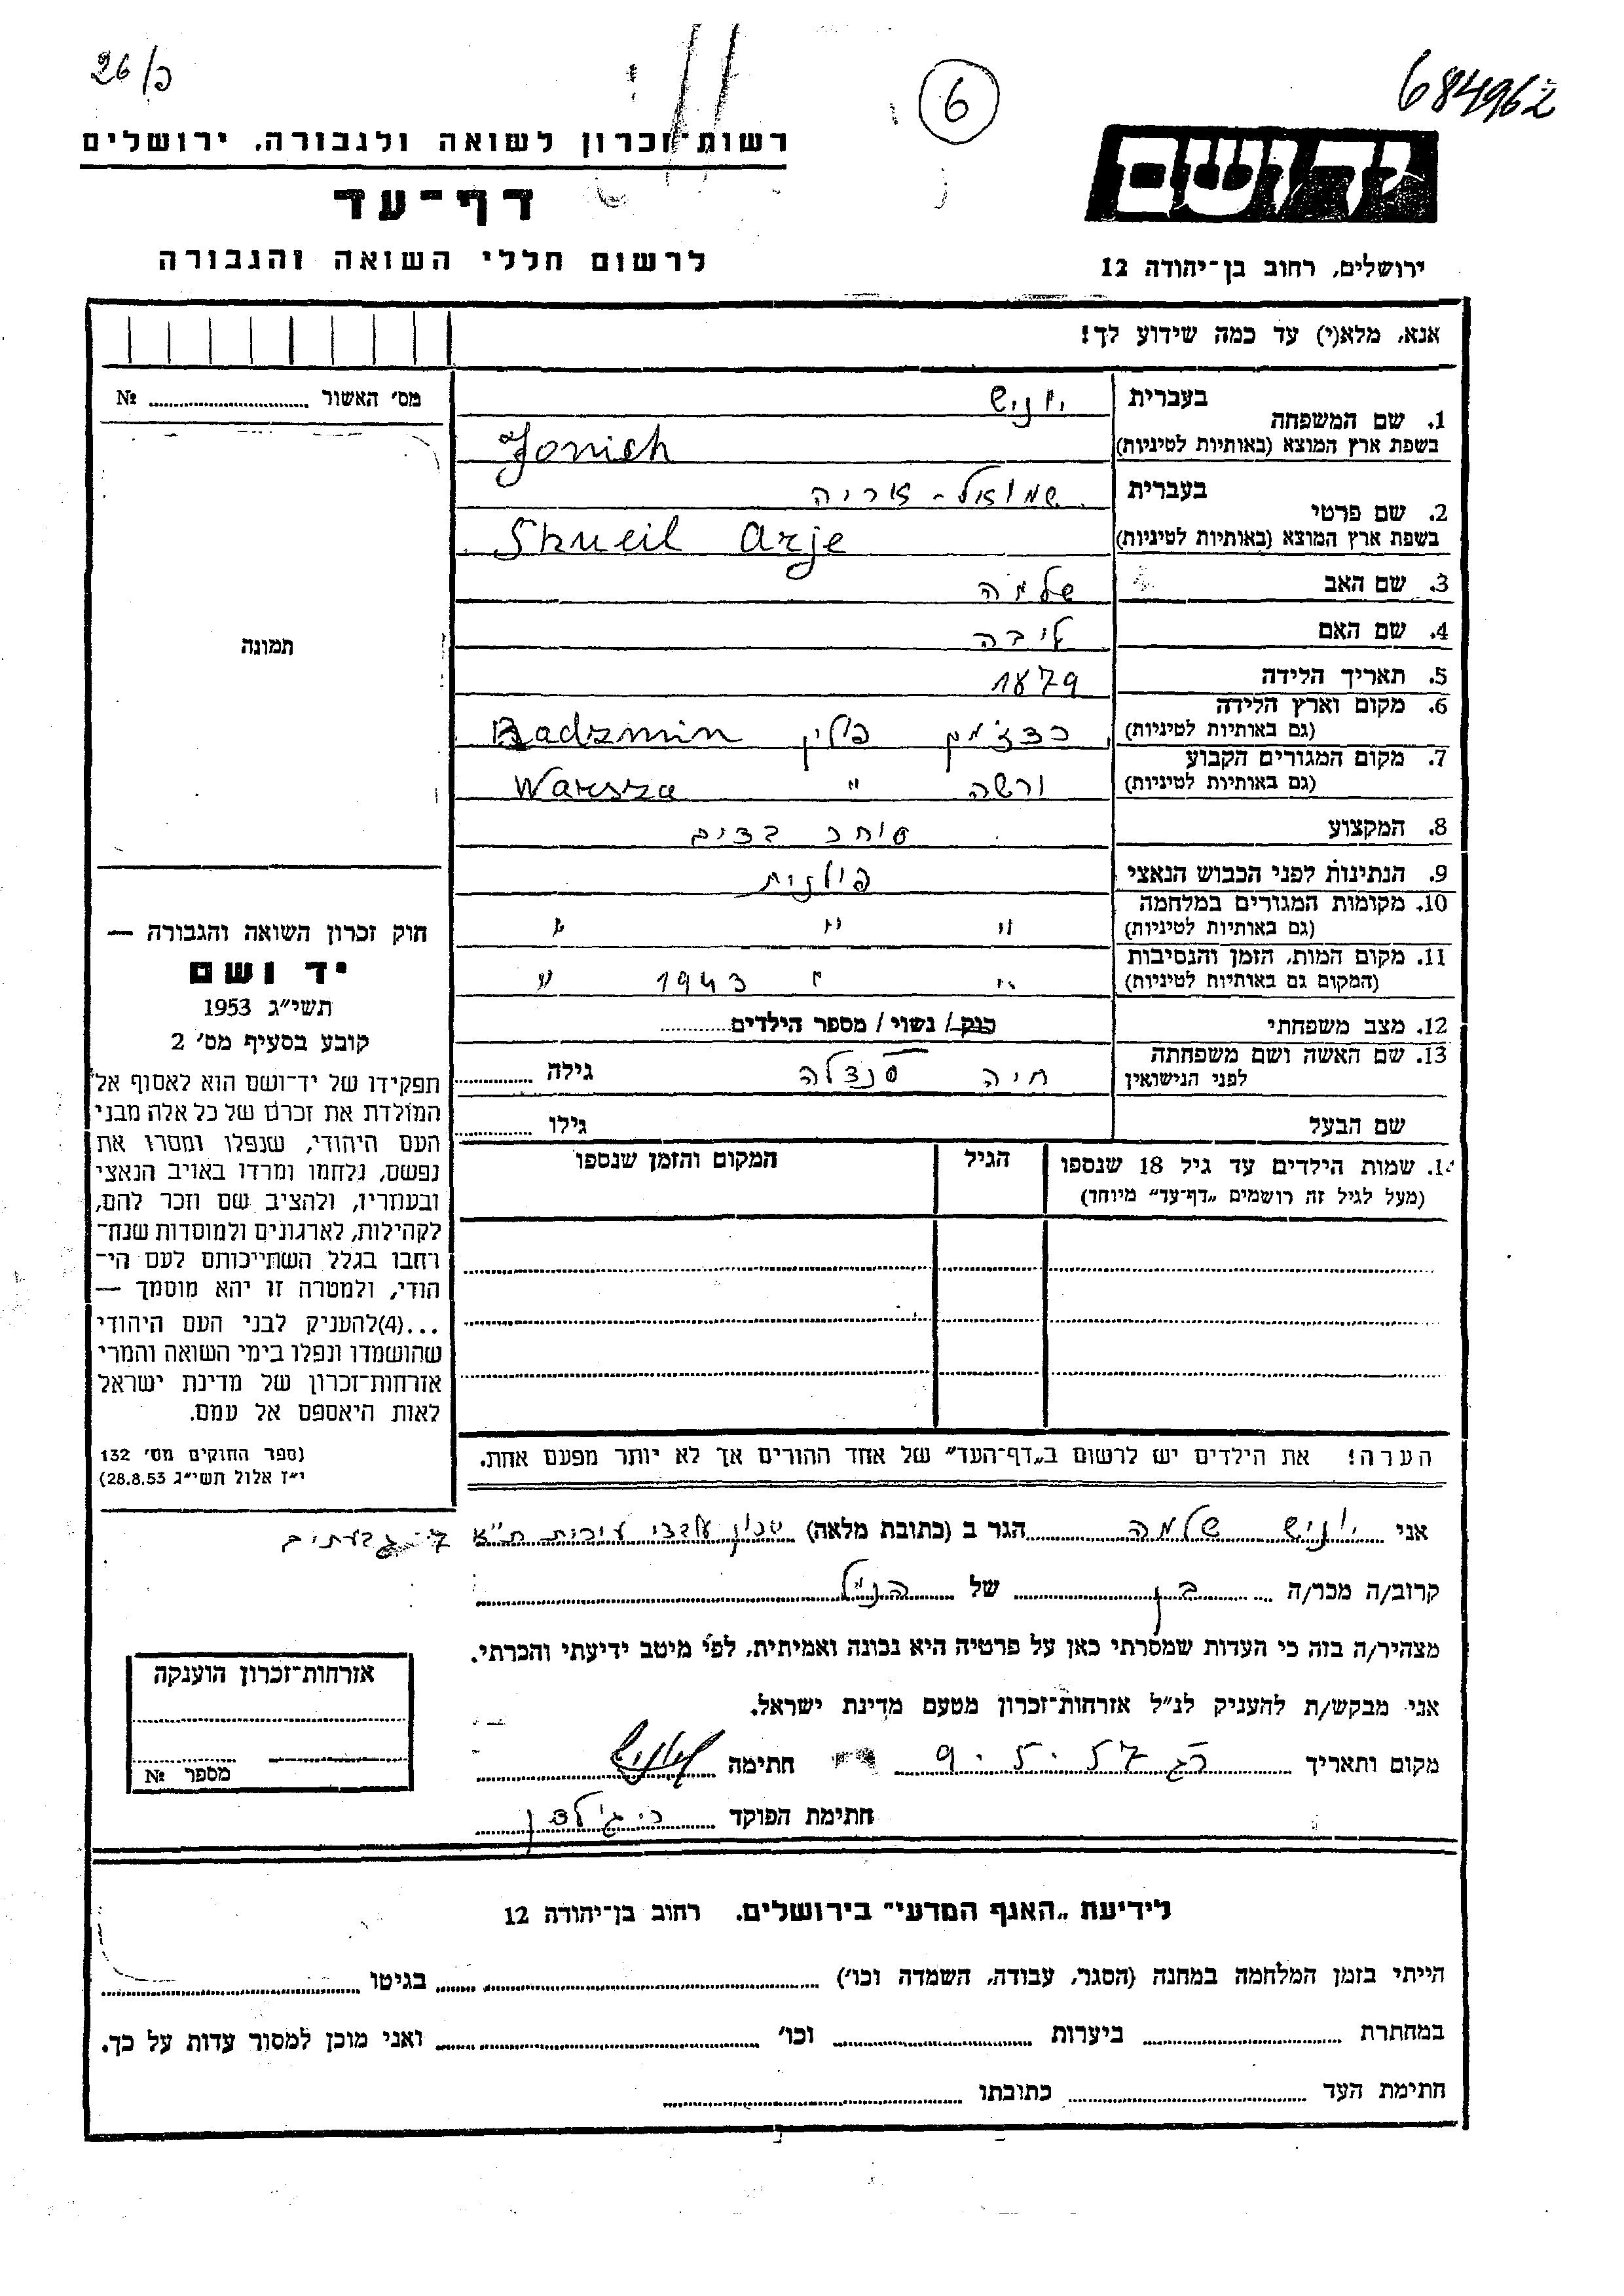 26/כ
6
684962
רשות-זכרון לשואה ולגבורה, ירושלים
דף-עד
לרשום חללי השואה והגבורה
יד ושם
ירושלים, רחוב בן-יהודה 12
אנא, מלא(י) עד כמה שידוע לך!
מס' האשור № 
תמונה
חוק זכרון השואה והגבורה —
יד ושם
תשי"ג 1953
קובע בסעיף מס' 2
תפקידו של יד-ושם הוא לאסוף אל
המולדת את זכרם של כל אלה מבני
העם היהודי, שנפלו ומסרו את
נפשם, נלחמו ומרדו באויב הנאצי
ובעוזריו, ולהציב שם וזכר להם,
לקהילות, לארגונים ולמוסדות שנח-
רחבו בגלל השתייכותם לעם הי-
הודי, ולמטרה זו יהא מוסמך —
...(4)להעניק לבני העם היהודי
שהושמדו ונפלו בימי השואה והמרי
אזרחות-זכרון של מדינת ישראל
לאות היאספם אל עמם.
(ספר החוקים מס' 132
י"ז אלול תשי"ג 28.8.53)
1. שם המשפחה בעברית יוניש
בשפת ארץ המוצא (באותיות לטיניות) Jonish
2. שם פרטי בעברית שמואל - אריה
בשפת ארץ המוצא (באותיות לטיניות) Shueil Arje
3. שם האב שלמה
4. שם האם ליבה
5. תאריך הלידה 1879
6. מקום וארץ הלידה (גם באותיות לטיניות) פולין Badzmin
7. מקום המגורים הקבוע (גם באותיות לטיניות) ורשה " Warsza
8. המקצוע סוחר בדים
9. הנתינות לפני הכבוש הנאצי פולנית
10. מקומות המגורים במלחמה (גם באותיות לטיניות) " " "
11. מקום המות, הזמן והנסיבות (המקום גם באותיות לטיניות) " " 1943 "
12. מצב משפחתי רוק / נשוי / מספר הילדים
13. שם האשה ושם משפחתה לפני הנישואין חיה סנדלה גילה
שם הבעל גילו
14. שמות הילדים עד גיל 18 שנספו הגיל המקום והזמן שנספו
(מעל לגיל זה רושמים "דף-עד" מיוחד)
הערה! את הילדים יש לרשום ב"דף-העד" של אחד ההורים אך לא יותר מפעם אחת.
אני יוניש שלמה הגר ב (כתובת מלאה) שכון עובדי עירית ת"א גבעתיים
קרוב/ה מכר/ה בן של הנ"ל
מצהיר/ה בזה כי העדות שמסרתי כאן על פרטיה היא נכונה ואמיתית, לפי מיטב ידיעתי והכרתי.
אני מבקש/ת להעניק לנ"ל אזרחות-זכרון מטעם מדינת ישראל.
מקום ותאריך רג 9.5.57 חתימה
חתימת הפוקד
אזרחות-זכרון הוענקה
מספר №
לידיעת "האגף המדעי" בירושלים, רחוב בן-יהודה 12
הייתי בזמן המלחמה במחנה (הסגר, עבודה, השמדה וכו') בגיטו
במחתרת ביערות וכו' ואני מוכן למסור עדות על כך.
חתימת העד כתובתו